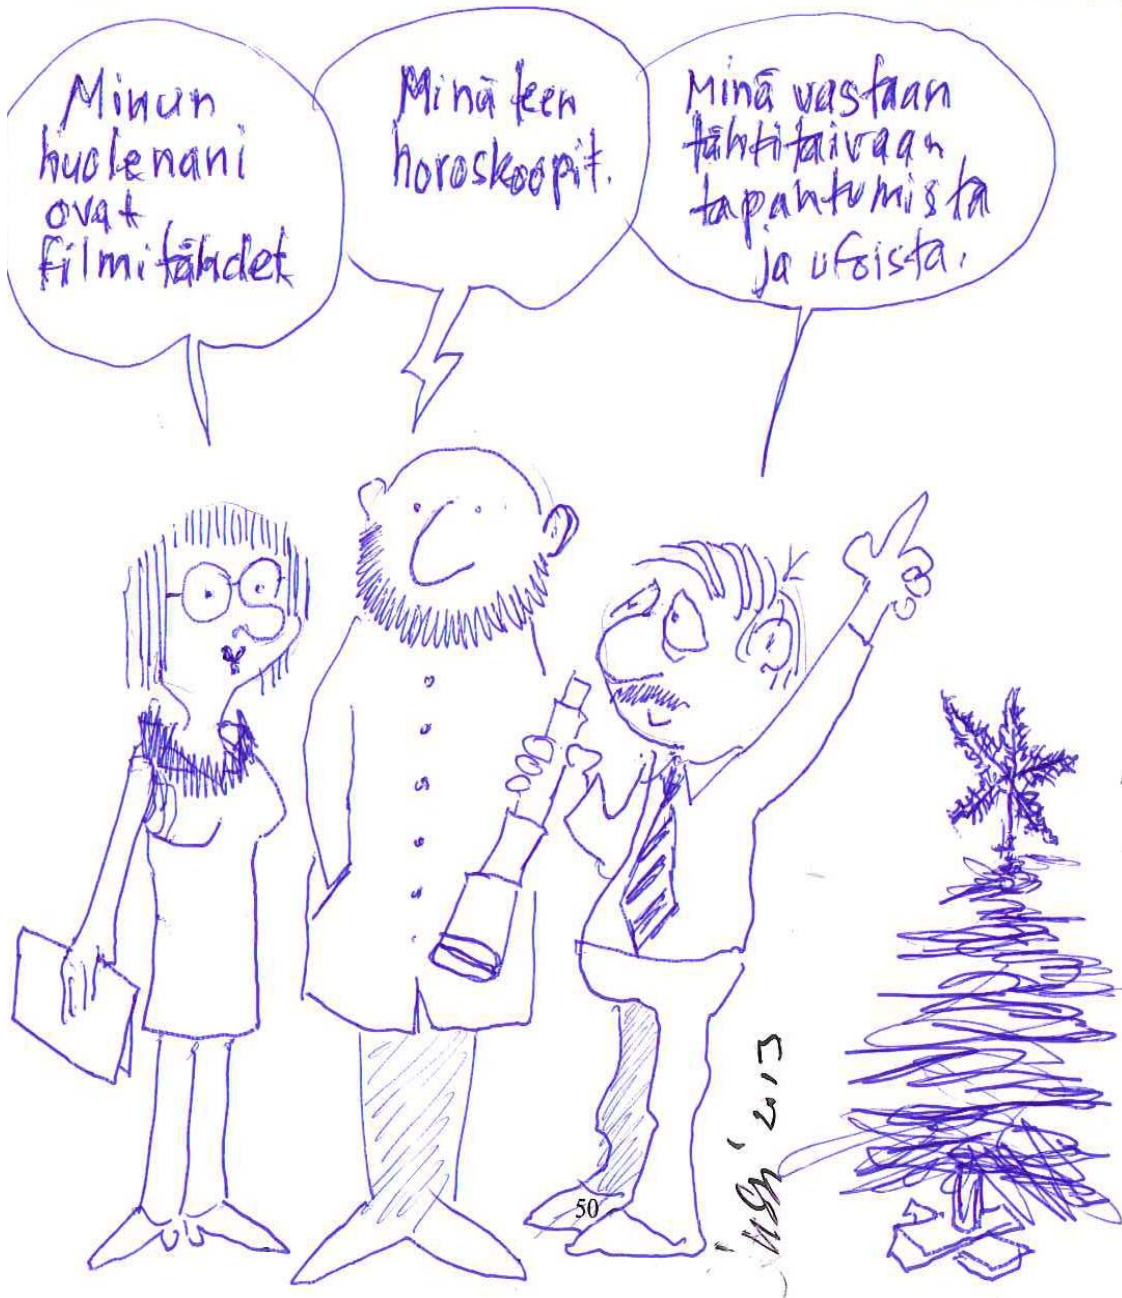 Minun
huolenani
ovat
filmitähdet
Minä teen
horoskoopit.
Minä vastaan
tähtitaivaan
tapahtumista
ja ufoista.
50
2013